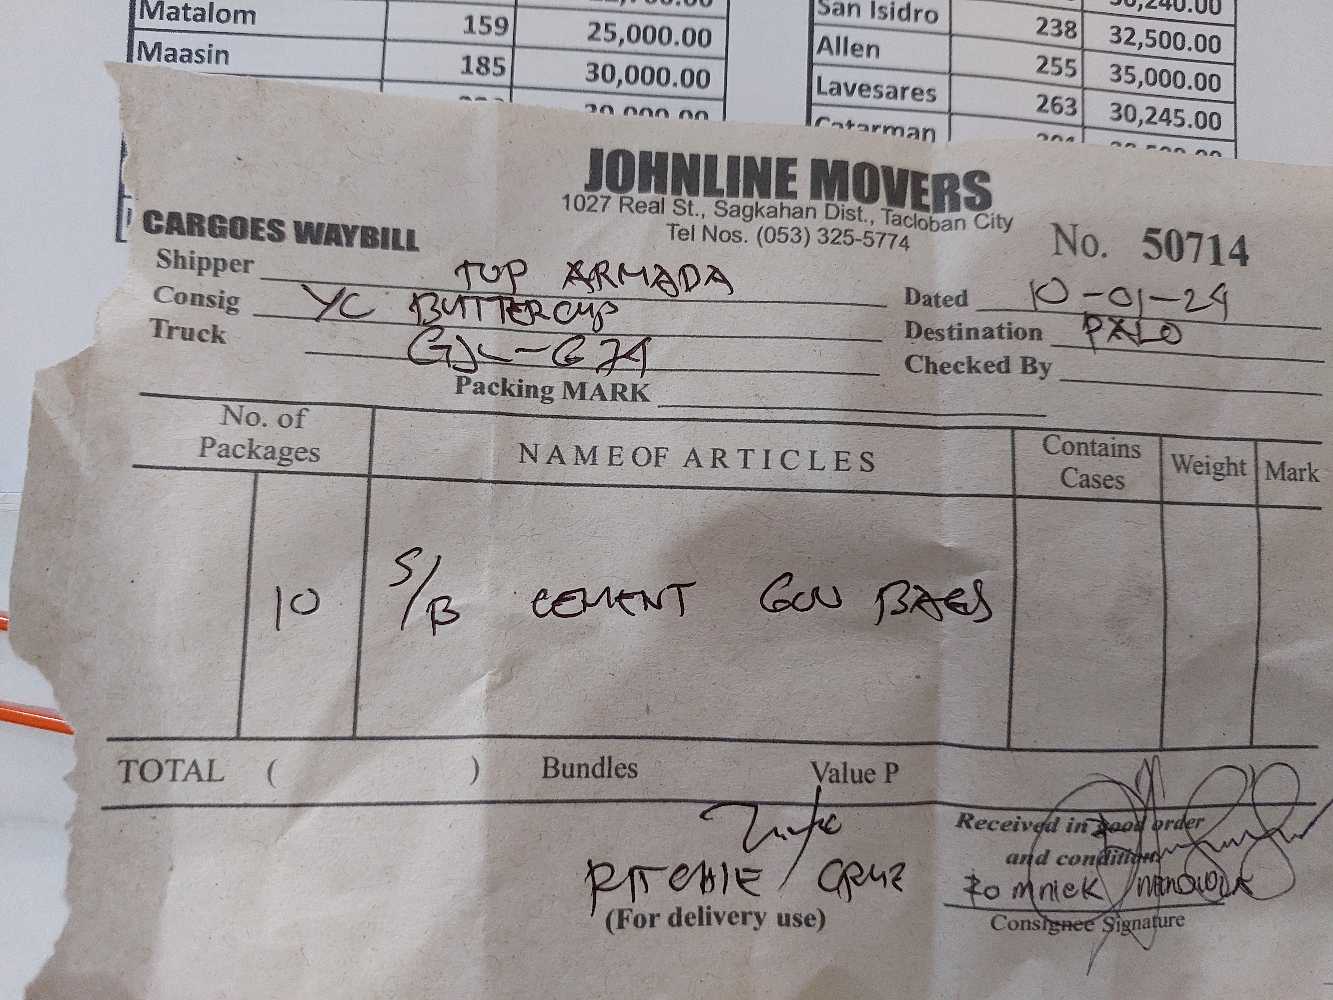 Matalom 159 25,000.00
Maasin 185 30,000.00
San Isidro 238 32,500.00
Allen 255 35,000.00
Lavesares 263 30,245.00
Catarman
JOHNLINE MOVERS
1027 Real St., Sagkahan Dist., Tacloban City
Tel Nos. (053) 325-5774
CARGOES WAYBILL
No. 50714
Shipper TOP ARMADA
Dated 10-01-24
Consig YC BUTTERCUP
Destination PALO
Truck
Checked By
Packing MARK
No. of Packages NAME OF ARTICLES Contains Cases Weight Mark
10 S/B CEMENT BAGS
TOTAL ( ) Bundles Value P
Received in good order
and condition
RITCHIE / CRUZ
(For delivery use)
Consignee Signature